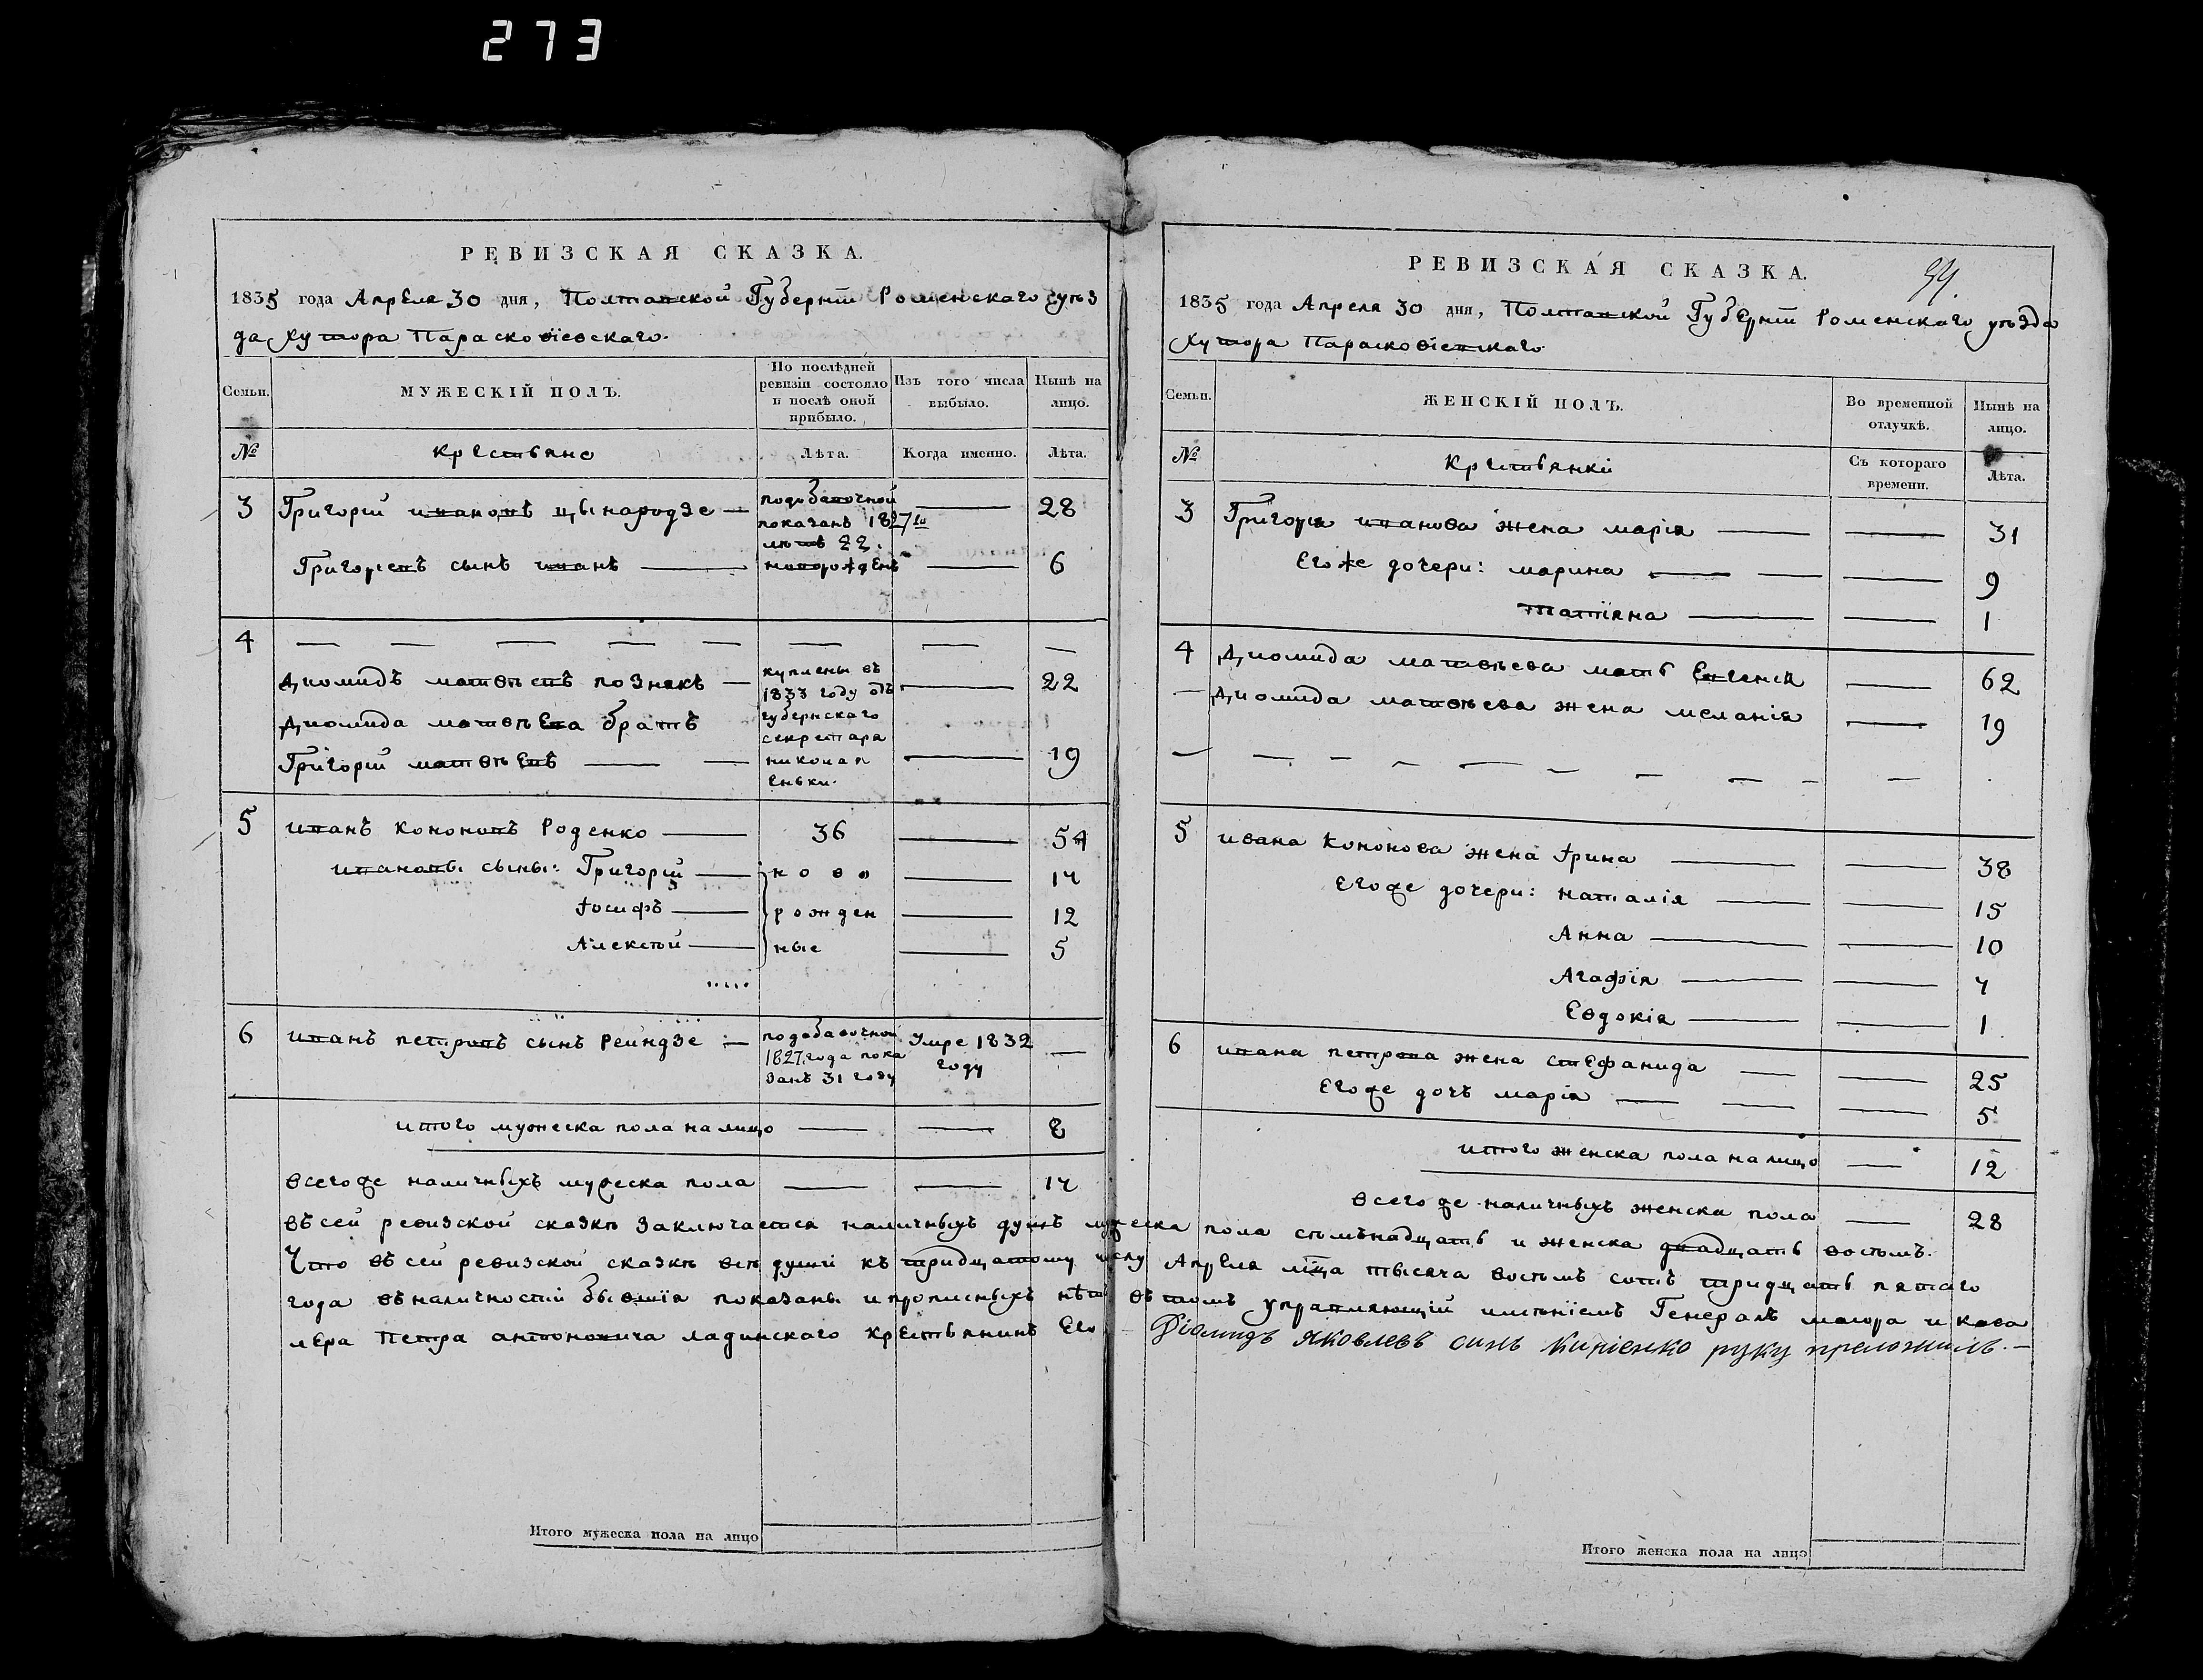 273
РЕВИЗСКАЯ СКАЗКА.
1835 года Апреля 30 дня, Полтавской Губернїи Роменского уѣз
да Хутора Парасковїевскаго.
Семьи. МУЖЕСКІЙ ПОЛЪ. По послѣдней ревизіи состояло и послѣ оной прибыло. Изъ того числа выбыло. Нынѣ на лицо.
№ Крестьяне Лѣта. Когда именно. Лѣта.
3 Григорій ивановъ цынародзе — подобавочной показанъ 1827го лѣтъ 22. — 28
Григорьевъ сынъ иванъ — новорожденъ — 6
4 — — — — — — — —
Диомидъ матвѣевъ познякъ — куплены въ 1833 году отъ губернскаго секретаря николая Еньки. — 22
Диомида матвѣева братъ
Григорій матвѣевъ — — 19
5 иванъ Кононовъ Роденко — 36 — 54
ивановы сыны: Григорій — ново — 17
Іосифъ — рожден — 12
Алексѣй — ные — 5
6 иванъ петровъ сынъ Реиндзе — подобавочной 1827 года показанъ 31 году Умре 1832 году —
итого мужеска пола налицо — — 8
всегоже наличныхъ мужеска пола — — 17
РЕВИЗСКАЯ СКАЗКА. 34.
1835 года Апреля 30 дня, Полтавской Губернїи Роменскаго уѣзда
Хутора Парасковїевскаго
Семьи. ЖЕНСКІЙ ПОЛЪ. Во временной отлучкѣ. Нынѣ на лицо.
№ Крестьянки Съ котораго времени. Лѣта.
3 Григорія иванова жена марія — — 31
Егоже дочери: марина — — 9
татіяна — — 1
4 Диомида матвѣева мать Евгенія — 62
— Диомида матвѣева жена меланія — 19
5 ивана Кононова жена Ірина — — 38
Егоже дочери: наталія — — 15
Анна — — 10
Агафїя — — 7
Евдокія — — 1
6 ивана петрова жена стефанида — — 25
Егоже дочь марія — — — 5
итого женска пола налицо — 12
всегоже наличныхъ женска пола — 28
въ сей ревизской сказкѣ заключается наличныхъ душъ мужеска пола сѣмьнадцать и женска двадцать восѣмъ.
Что въ сей ревизской сказкѣ всѣ души къ тридцатому числу Апреля мѣца тысяча восѣмъ сотъ тридцать пятаго
года въ наличности бывшїя показаны и прописныхъ нѣтъ въ томъ управляющій имѣніемъ Генералъ маіора и кава
лера Петра антоновича ладинскаго крестьянинъ Его Діомидъ Яковлевъ синъ Кириенко руку преложилъ. —
Итого мужеска пола на лицо
Итого женска пола на лицо